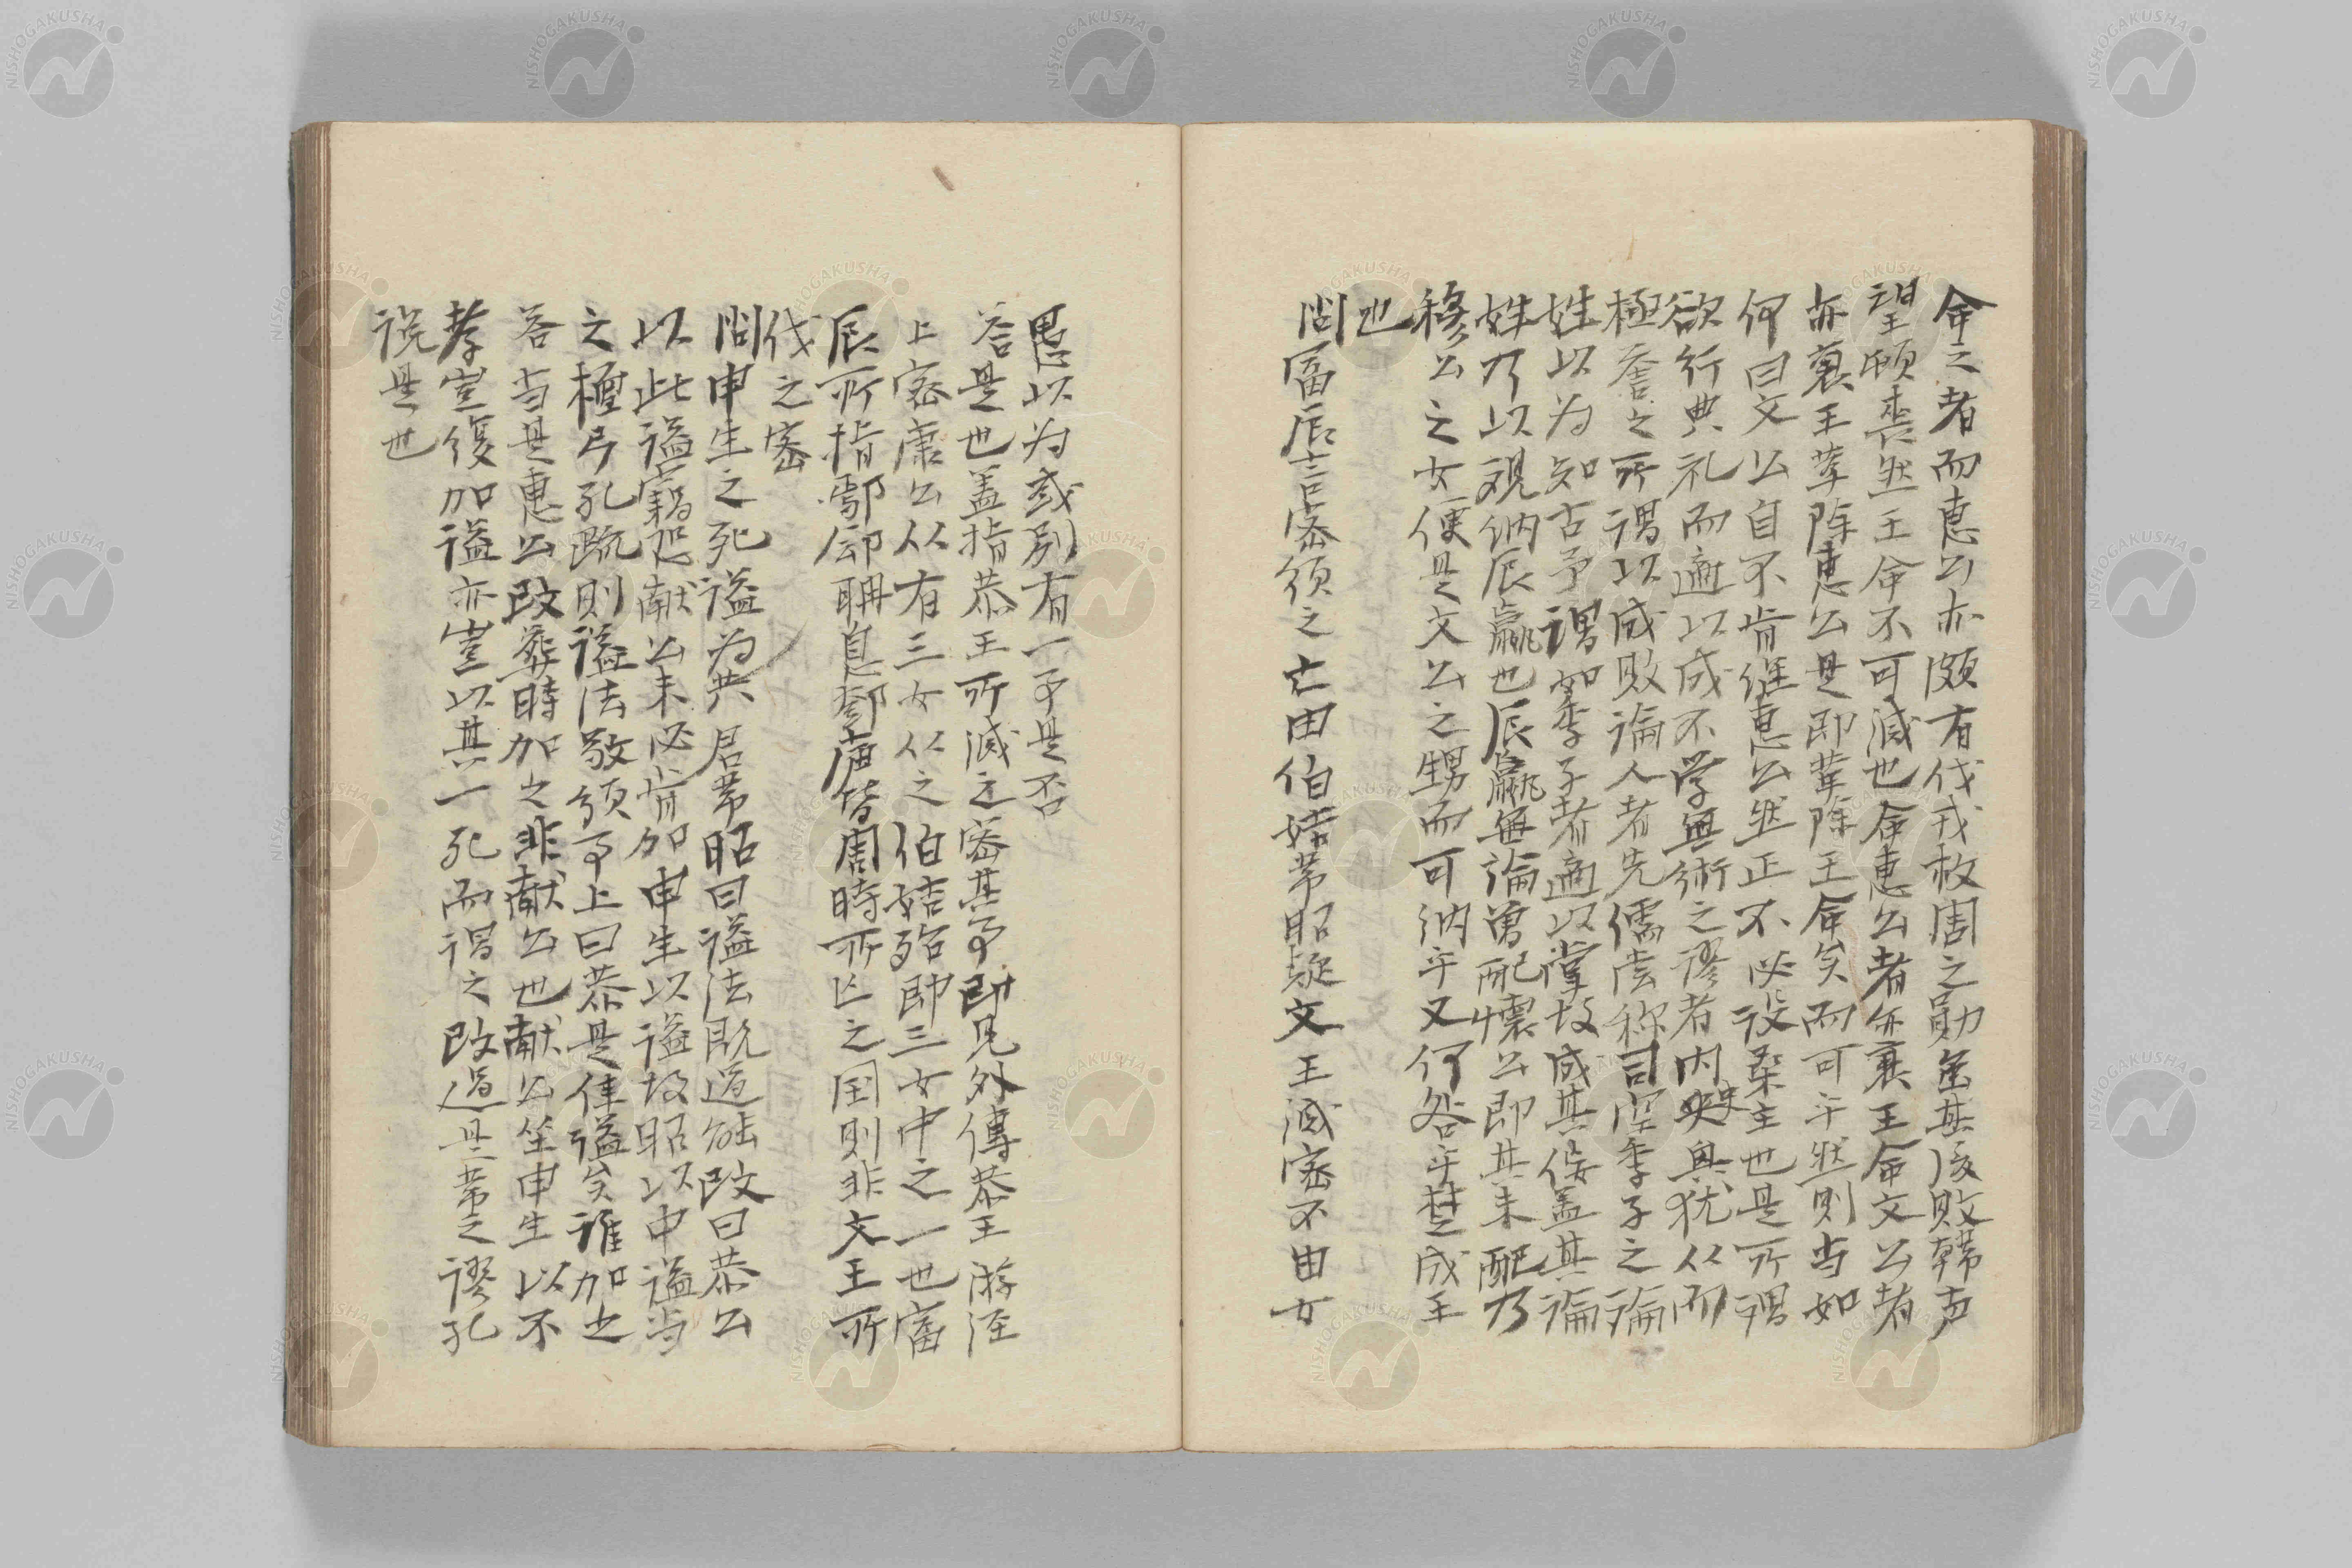 命之者而恵公亦頗有伐戎救周之勛虽其後敗韓声
望頓喪然王命不可滅也命恵公者亦襄王命文公者
亦襄王葦除恵公是即葦除王命矣而可乎然則当如
何曰文公自不肯継恵公然正不必設桑主也是所謂
欲行典礼而適以成不学無術之謬者内史興犹从而
極誉之所謂以成敗論人者先儒尝称司空季子之論
姓以为知古予謂如季子者適以掌故成其佞盖其論
姓乃以覌纳辰嬴也辰嬴無論曽配懷公即其未配乃
穆公之女便是文公之甥而可纳乎又何咎乎楚成王
也
問富辰言密须之亡由伯姞韋昭疑文王滅密不由女
愚以为或别有一事是否
答是也盖指恭王所滅之密其事即见外傳恭王游泾
上密康公从有三女从之伯姞殆即三女中之一也富
辰所指鄢鄶聃息鄧庸皆周時所亾之国則非文王所
伐之密
問申生之死谥为共君韋昭曰谥法既过能改曰恭公
以此谥竊恐献公未必肯加申生以谥故昭以中谥当
之檀弓孔疏則谥法敬顺事上曰恭是佳谥矣誰加之
答当是恵公改葬時加之非献公也献公坐申生以不
孝豈復加谥亦豈以其一死而谓之改過是韋之謬孔
说是也